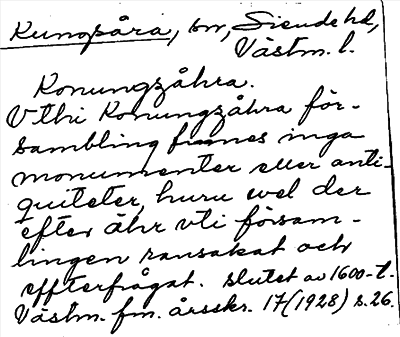 Kungsåra, sn, Siende hd,
Västm. l.
Konungzåhra.
Vthi Konungzåhra för-
sambling finnes inga
monumenter eller anti-
quiteter, huru wel der
efter ähr vti försam-
lingen ransakat och
effterfrågat. slutet av 1600-t.
Västm. fm. årsskr. 17 (1928) s. 26.